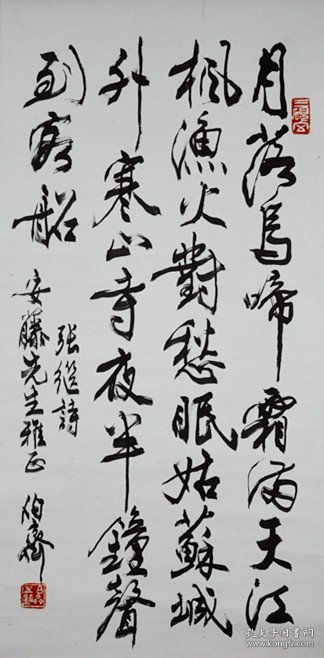 月落烏啼霜滿天江
楓漁火對愁眠姑蘇城
外寒山寺夜半鐘聲
到客船
張繼詩
安藤先生雅正
孔夫子旧书网
www.kongfz.com